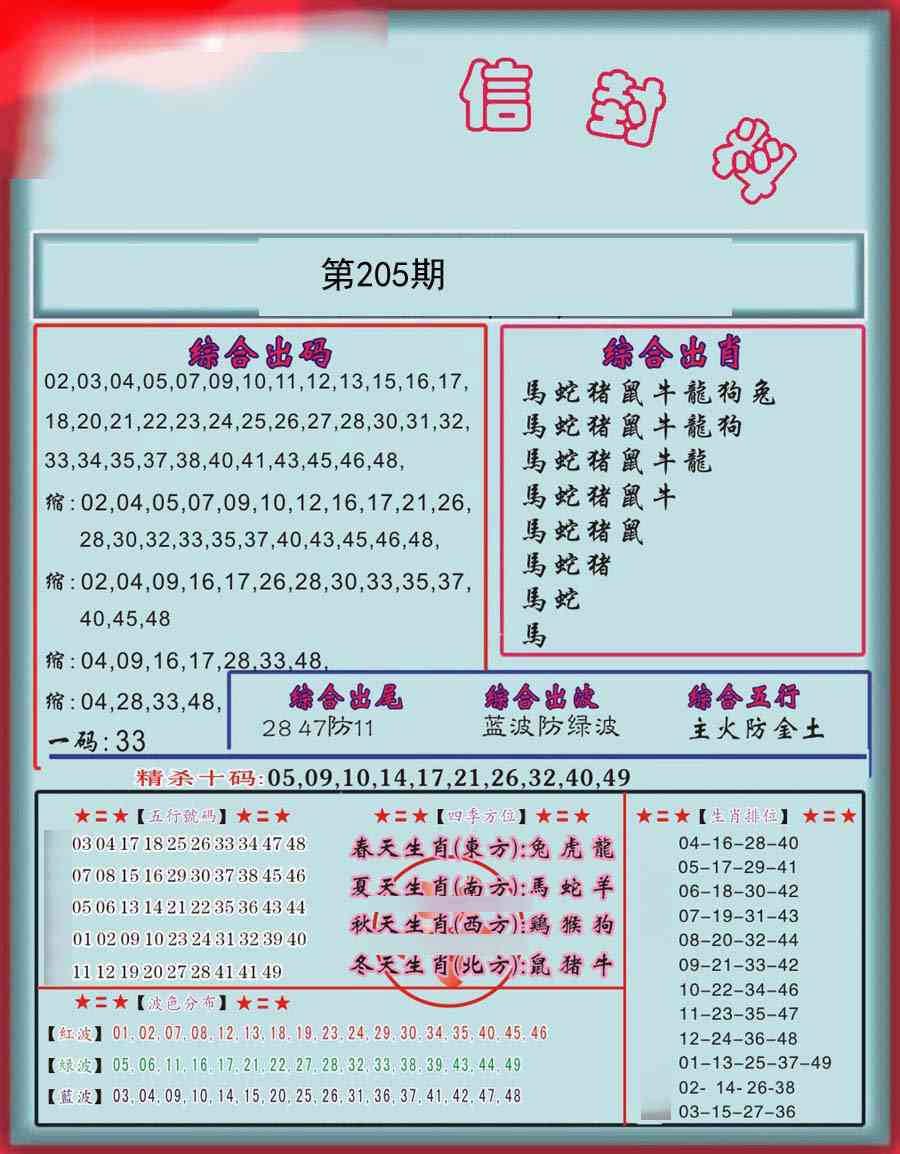 信封料
第205期
综合出码
02,03,04,05,07,09,10,11,12,13,15,16,17,
18,20,21,22,23,24,25,26,27,28,30,31,32,
33,34,35,37,38,40,41,43,45,46,48,
缩:02,04,05,07,09,10,12,16,17,21,26,
28,30,32,33,35,37,40,43,45,46,48,
缩:02,04,09,16,17,26,28,30,33,35,37,
40,45,48
缩:04,09,16,17,28,33,48,
缩:04,28,33,48,
一码:33
综合出肖
馬蛇猪鼠牛龍狗兔
馬蛇猪鼠牛龍狗
馬蛇猪鼠牛龍
馬蛇猪鼠牛
馬蛇猪鼠
馬蛇猪
馬蛇
馬
综合出尾
28 47防11
综合出波
蓝波防绿波
综合五行
主火防金土
精杀十码:05,09,10,14,17,21,26,32,40,49
★=★【五行號碼】★=★
03 04 17 18 25 26 33 34 47 48
07 08 15 16 29 30 37 38 45 46
05 06 13 14 21 22 35 36 43 44
01 02 09 10 23 24 31 32 39 40
11 12 19 20 27 28 41 41 49
★=★【四季方位】★=★
春天生肖(東方):兔虎龍
夏天生肖(南方):馬蛇羊
秋天生肖(西方):鷄猴狗
冬天生肖(北方):鼠猪牛
★=★【生肖排位】★=★
04-16-28-40
05-17-29-41
06-18-30-42
07-19-31-43
08-20-32-44
09-21-33-42
10-22-34-46
11-23-35-47
12-24-36-48
01-13-25-37-49
02- 14-26-38
03-15-27-36
★=★【波色分布】★=★
【紅波】01,02,07,08,12,13,18,19,23,24,29,30,34,35,40,45,46
【緑波】05,06,11,16,17,21,22,27,28,32,33,38,39,43,44,49
【藍波】03,04,09,10,14,15,20,25,26,31,36,37,41,42,47,48